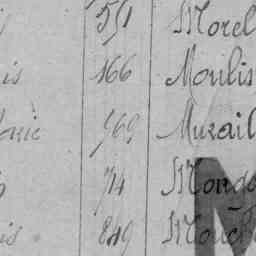 551 Morel
is 166 Moulis
Marie 969 Murail
74 Monge
is 849 Mouch
M